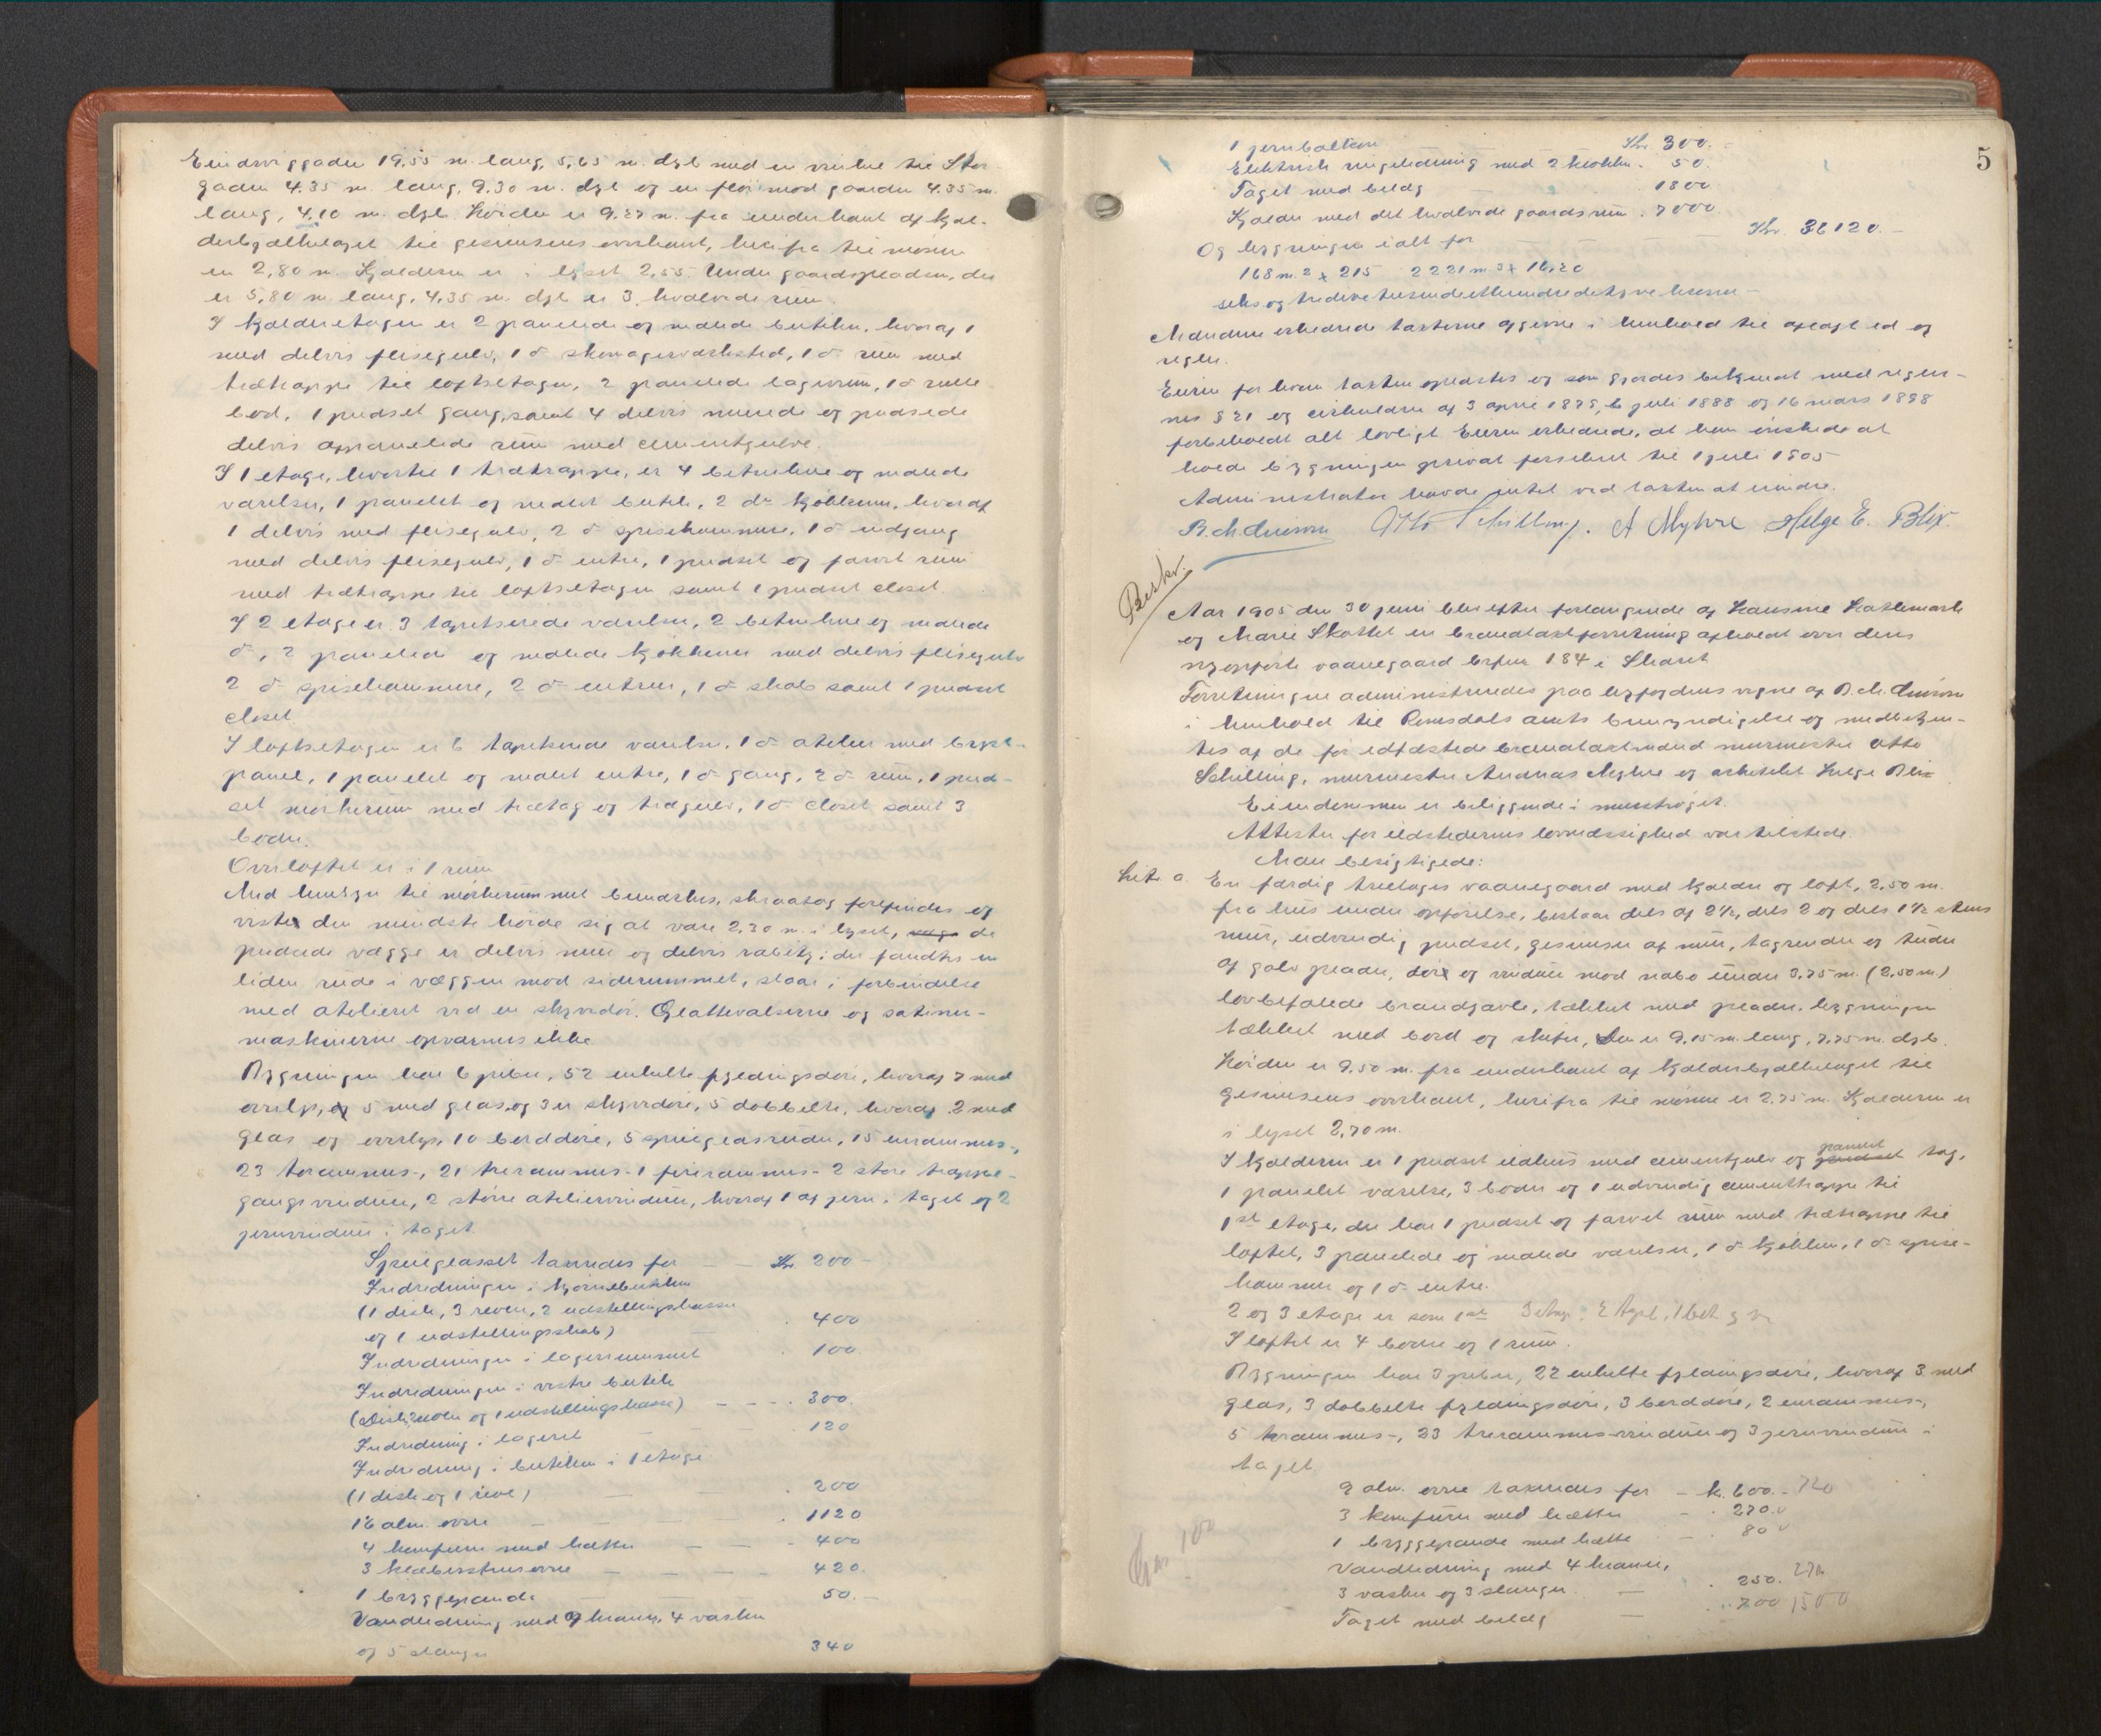 Eindvriggaden 19.55 m. lang, 5,65 m. dyb med en vinkel til Stor-
gaden 4.35 m. lang, 9.30 m. dyb og en fløi mod gaarden 4.35 m.
lang, 4,10 m. dyb. Høiden er 9.27 m. fra underkant af kjæl-
derbjælkelaget til gesimsens overkant, herifra til mønne
en 2,80 m. Kjælderen er i lyset 2,55. Under gaardspladsen, der
er 5,80 m. lang, 4,35 m. dyb er 3 hvælvede rum.
I kjælderetagen er 2 panelede og malede butiker, hvoraf 1
med delvis flisegulv, 1 do skomagerværksted, 1 do rum med
trætrappe til loftsetagen, 2 panelede lagerrum, 1 do rulle
bod, 1 pudset gang, samt 4 delvis murede og pudsede
delvis oppanelede rum med cementgulve.
I 1 etage, hvortil 1 trætrappe, er 4 betrukne og malede
værelser, 1 panelet og malet butik, 2 do kjøkkener, hvoraf
1 delvis med flisegulv, 2 do spisekammere, 1 do indgang
med delvis flisegulv, 1 do entre, 1 pudset og farvet rum
med trætrappe til loftsetagen samt 1 pudset closet.
I 2 etage er 3 tapetserede værelser, 2 betrukne og malede
do, 2 panelede og malede kjøkkener med delvis flisegulv
2 do spisekammere, 2 do entreer, 1 do skab samt 1 pudset
closet.
I loftsetagen er 6 tapetserede værelser, 1 do atelier med bryst-
panel, 1 panelet og malet entre, 1 do gang, 2 do rum, 1 pud-
set mørkerum med trætag og trægulv, 1 do closet samt 3
boder.
Overloftet er i 1 rum
Med hensyn til mørkerummet bemærkes, skraatag forefindes og
viste den mindste høide sig at være 2.30 m. i lyset, de
pudsede vægge er delvis mur og delvis rabitz; der fandtes en
liden rude i væggen mod siderummet, staar i forbindelse
med atelieret ved en skyvedør. Glattevalserne og satiner-
maskinerne opvarmes ikke
Bygningen har 6 piber, 52 enkelte fyldingsdøre, hvoraf 7 med
overlys, 5 med glas og 3 er skyvedøre, 5 dobbelte, hvoraf 2 med
glas og overlys, 10 borddøre, 5 speilglasruder, 15 enrammes-,
23 torammes-, 21 trerammes- 1 firerammes- 2 store trappe-
gangsvinduer, 2 større ateliervinduer, hvoraf 1 af jern i taget og 2
jernvinduer i taget.
Speilglasset taxeredes for — — Kr. 200 —
Indredningen i hjørnebutiken
(1 disk, 3 reoler, 2 udstellingskasser
og 1 udstellingsskab) — . 400
Indredningen i lagerrummet . 100
Indredningen i vestre butik
(Disk, reoler og 1 udstellingskasse) — — — . 300.
Indredning i lageret — — . 120
Indredning i butiken i 1 etage
(1 disk og 1 reol) — — . 200
16 alm. ovne — — — . 1120
4 komfurer med hætter — — — . 400
3 klæberstensovne — — — . 420.
1 bryggepande — — 50. —
Vandledning med 9 kraner, 4 vasker
og 5 slanger 340
5
1 jernbalkon Kr. 300. —
Elektrisk ringeledning med 2 klokker . 50.
Taget med belæg — . 1800
Kjælder med det hvælvede gaardsrum . 7000
Og bygningen ialt for — — — — Kr. 36120. —
168 m.2 x 215 2221 m3 x 16,20
seks og tredive tusendeethundredeogtyve kroner —
Mændene erklærede taxterne afgivne i henhold til aflagt ed og
regler.
Eieren for hvem taxten oplæstes og som gjordes bekjendt med regler-
nes § 21 og cirkulærer af 3 april 1875, 6 juli 1888 og 16 mars 1898
forbeholdt alt lovligt. Eieren erklærede, at han ønskede at
holde bygningen privat forsikret til 1 juli 1905
Administrator havde intet ved taxten at erindre.
Otto Schilling. A Myhre Helge E. Blix.
Beskr.
Aar 1905 den 30 juni blev efter forlangende af Hansine Hatlemark
og Marie Skottet en brandtaxtforretning afholdt over deres
nyopførte vaanegaard brfnr 184 i Skaret
Forretningen administreredes paa byfogdens vegne af
i henhold til Romsdals amts bemyndigelse og medbetjen-
tes af de før edfæstede brandtaxtmænd murmester Otto
Schilling, murmester Andreas Myhre og arkitekt Helge Blix
Eiendommen er beliggende i murstrøget.
Attester for ildstedernes lovmæssighed var tilstede.
Man besigtigede:
Litr. a. En færdig treetages vaanegaard med kjælder og loft, 2.50 m.
fra hus under opførelse, bestaar dels af 2½, dels 2 og dels 1½ stens
mur, udvendig pudset, gesimser af mur, tagrender og tuder
af galv. plader, dør og vinduer mod nabo under 3.75 m. (2,50 m.)
lovbefalede brandgavle, tækket med plader. bygningen
tækket med bord og skifer, Den er 9,15 m. lang, 7.75 m. dyb.
Høiden er 9.50 m. fra underkant af kjælderbjælkelaget til
gesimsens overkant, herifra til mønne er 2.75 m. Kjælderen er
i lyset 2,70 m.
I kjælderen er 1 pudset ildhus med cementgulv og panelet tag,
1 panelet værelse, 3 boder og 1 udvendig cementtrappe til
1ste etage, der har 1 pudset og farvet rum med trætrappe til
loftet, 3 panelede og malede værelser, 1 do kjøkken, 1 do spise-
kammer og 1 do entre.
2 og 3 etage er som 1ste 3 etag: 2 tapt, 1 bet
I loftet er 4 boder og 1 rum.
Bygningen har 3 piber, 22 enkelte fyldingsdøre, hvoraf 3 med
glas, 3 dobbelte fyldingsdøre, 3 borddøre, 2 enrammes-,
5 torammes-, 23 trerammes-vinduer og 3 jernvinduer i
taget.
9 alm. ovne taxeredes for — k. 600. — 720
3 komfurer med hætter — . 270.
1 bryggepande med hætte — . 80
Vandledning med 4 kraner,
3 vasker og 3 slanger. — . 250. 270
Taget med belæg — . 700 1500
100